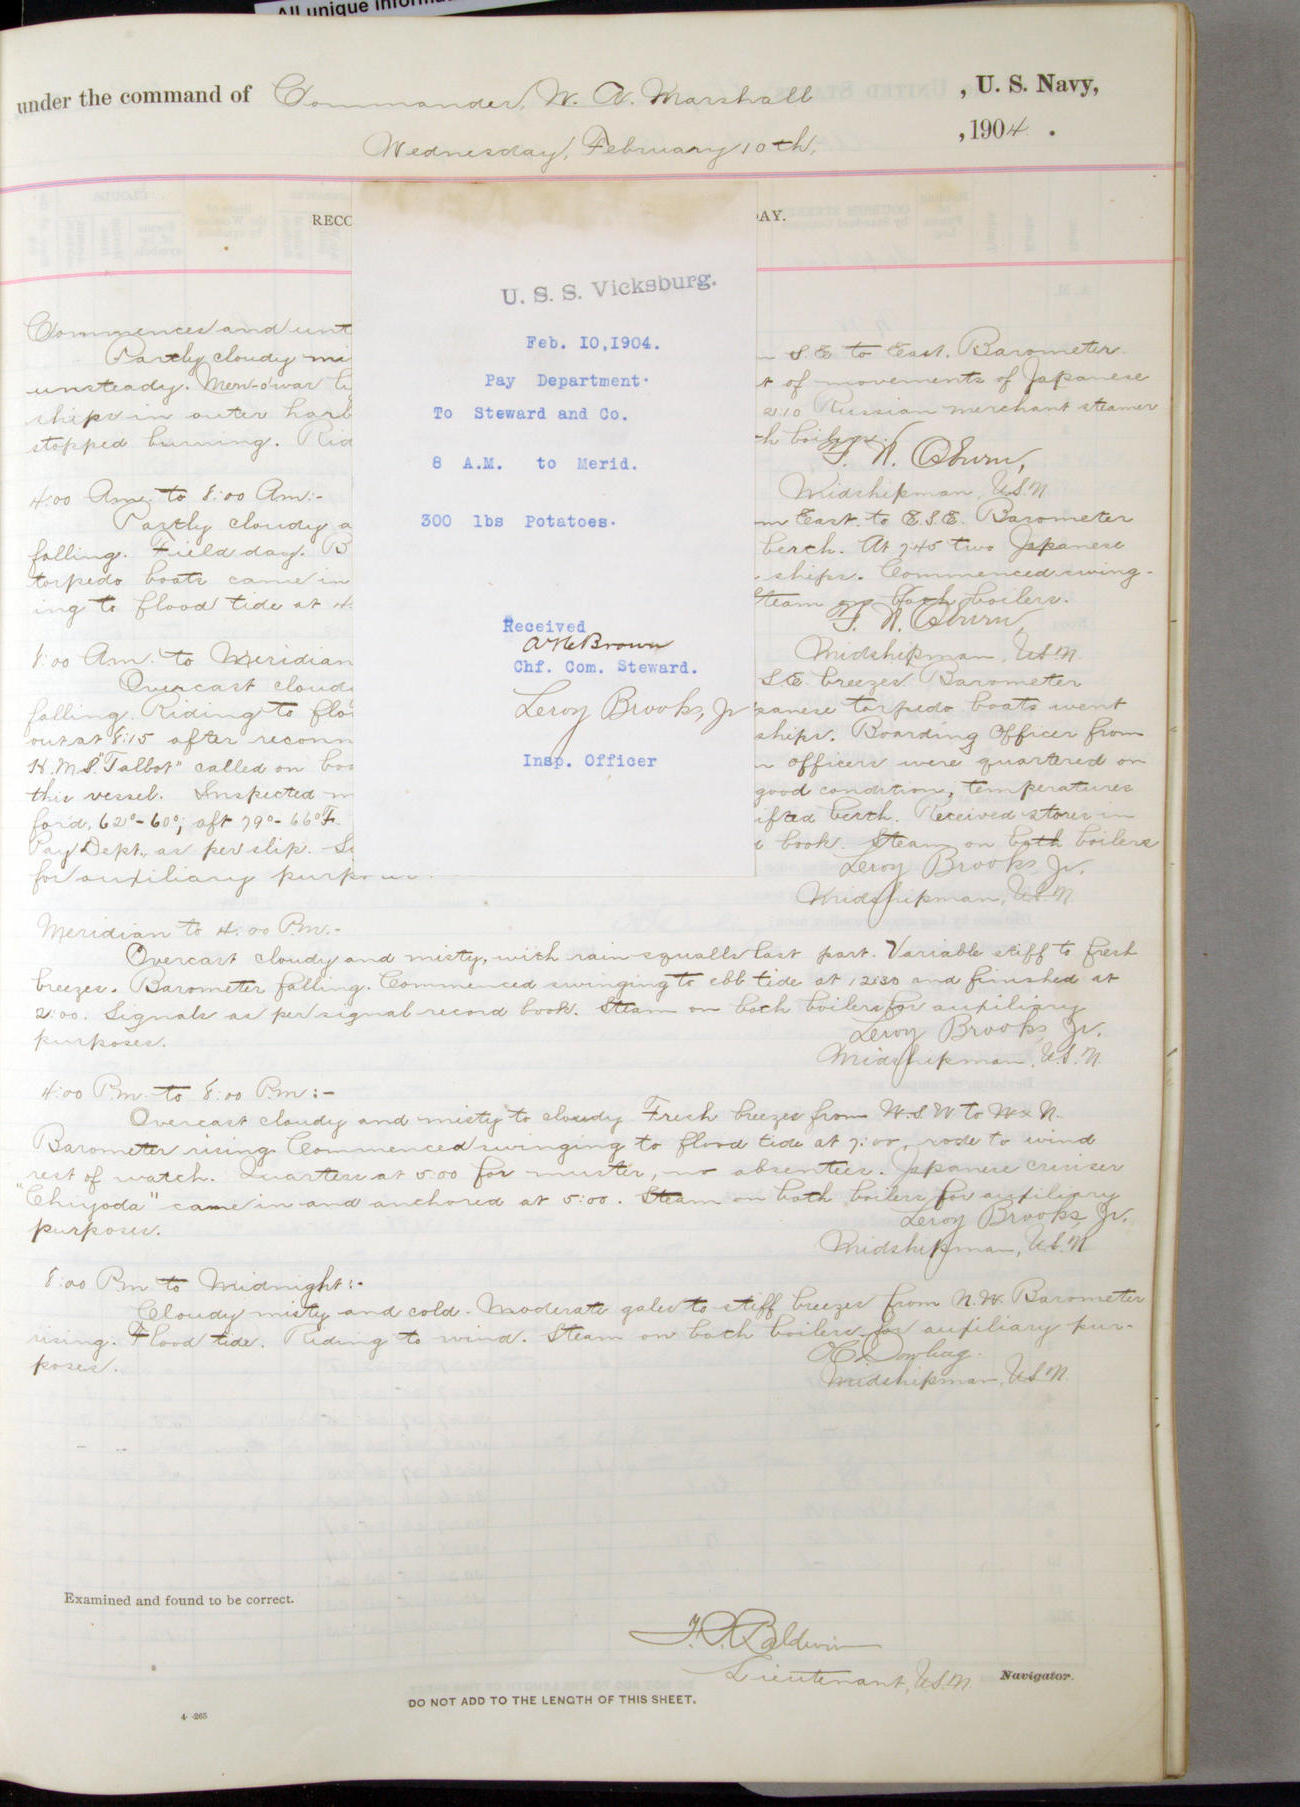 All unique informa
under the command of Commander, W. A. Marshall, U. S. Navy,
Wednesday, February 10th, , 1904.
RECO
DAY.
U. S. S. Vicksburg.
Feb. 10,1904.
Pay Department.
To Steward and Co.
8 A.M. to Merid.
300 lbs Potatoes.
Received
Brown
Chf. Com. Steward.
Leroy Brooks, Jr
Insp. Officer
Commences and unt
Partly cloudy mi S.E to East. Barometer
unsteady. Men-o'war of movements of Japanese
ships in outer harb 2:10 Russian merchant steamer
stopped burning. Rid boilers.
Midshipman, U.S.N
4:00 Am. to 8:00 Am:-
Partly cloudy a East to E.S.E. Barometer
falling. Field day. B berth. At 7:45 two Japanese
torpedo boats came in ships. Commenced swing-
ing to flood tide at 4: team on both boilers.
Midshipman, U.S.N.
8:00 Am. to Meridian
Overcast cloudy S.E. breezes. Barometer
falling. Riding to flo panese torpedo boats went
out at 8:15 after reconn ships. Boarding Officer from
H.M.S. "Talbot" called on boa officers were quartered on
this vessel. Inspected m good condition, temperatures
for'd, 62°-60°; aft 79°-66°F. ifted berth. Received stores in
Pay Dept., as per slip. Si book. Steam on both boilers
for auxiliary purposes.
Leroy Brooks Jr.
Midshipman, U.S.N.
Meridian to 4:00 Pm.-
Overcast cloudy and misty, with rain squalls last part. Variable stiff to fresh
breezes. Barometer falling. Commenced swinging to ebb tide at 12:30 and finished at
2:00. Signals as per signal record book. Steam on both boilers for auxiliary
purposes.
Leroy Brooks, Jr.
Midshipman, U.S.N.
4:00 Pm. to 8:00 Pm:-
Overcast cloudy and misty to cloudy. Fresh breezes from W.S.W to WxN.
Barometer rising. Commenced swinging to flood tide at 7:00, rode to wind
rest of watch. Quarters at 5:00 for muster, no absentees. Japanese cruiser
"Chiyoda" came in and anchored at 5:00. Steam on both boilers for auxiliary
purposes.
Leroy Brooks, Jr.
Midshipman, U.S.N
8:00 Pm to Midnight:-
Cloudy misty and cold. Moderate gales to stiff breezes from N.W. Barometer
rising. Flood tide. Riding to wind. Steam on both boilers for auxiliary pur-
poses.
Midshipman, U.S.N.
Examined and found to be correct.
Baldwin
Lieutenant, U.S.N. Navigator.
DO NOT ADD TO THE LENGTH OF THIS SHEET.
4-265